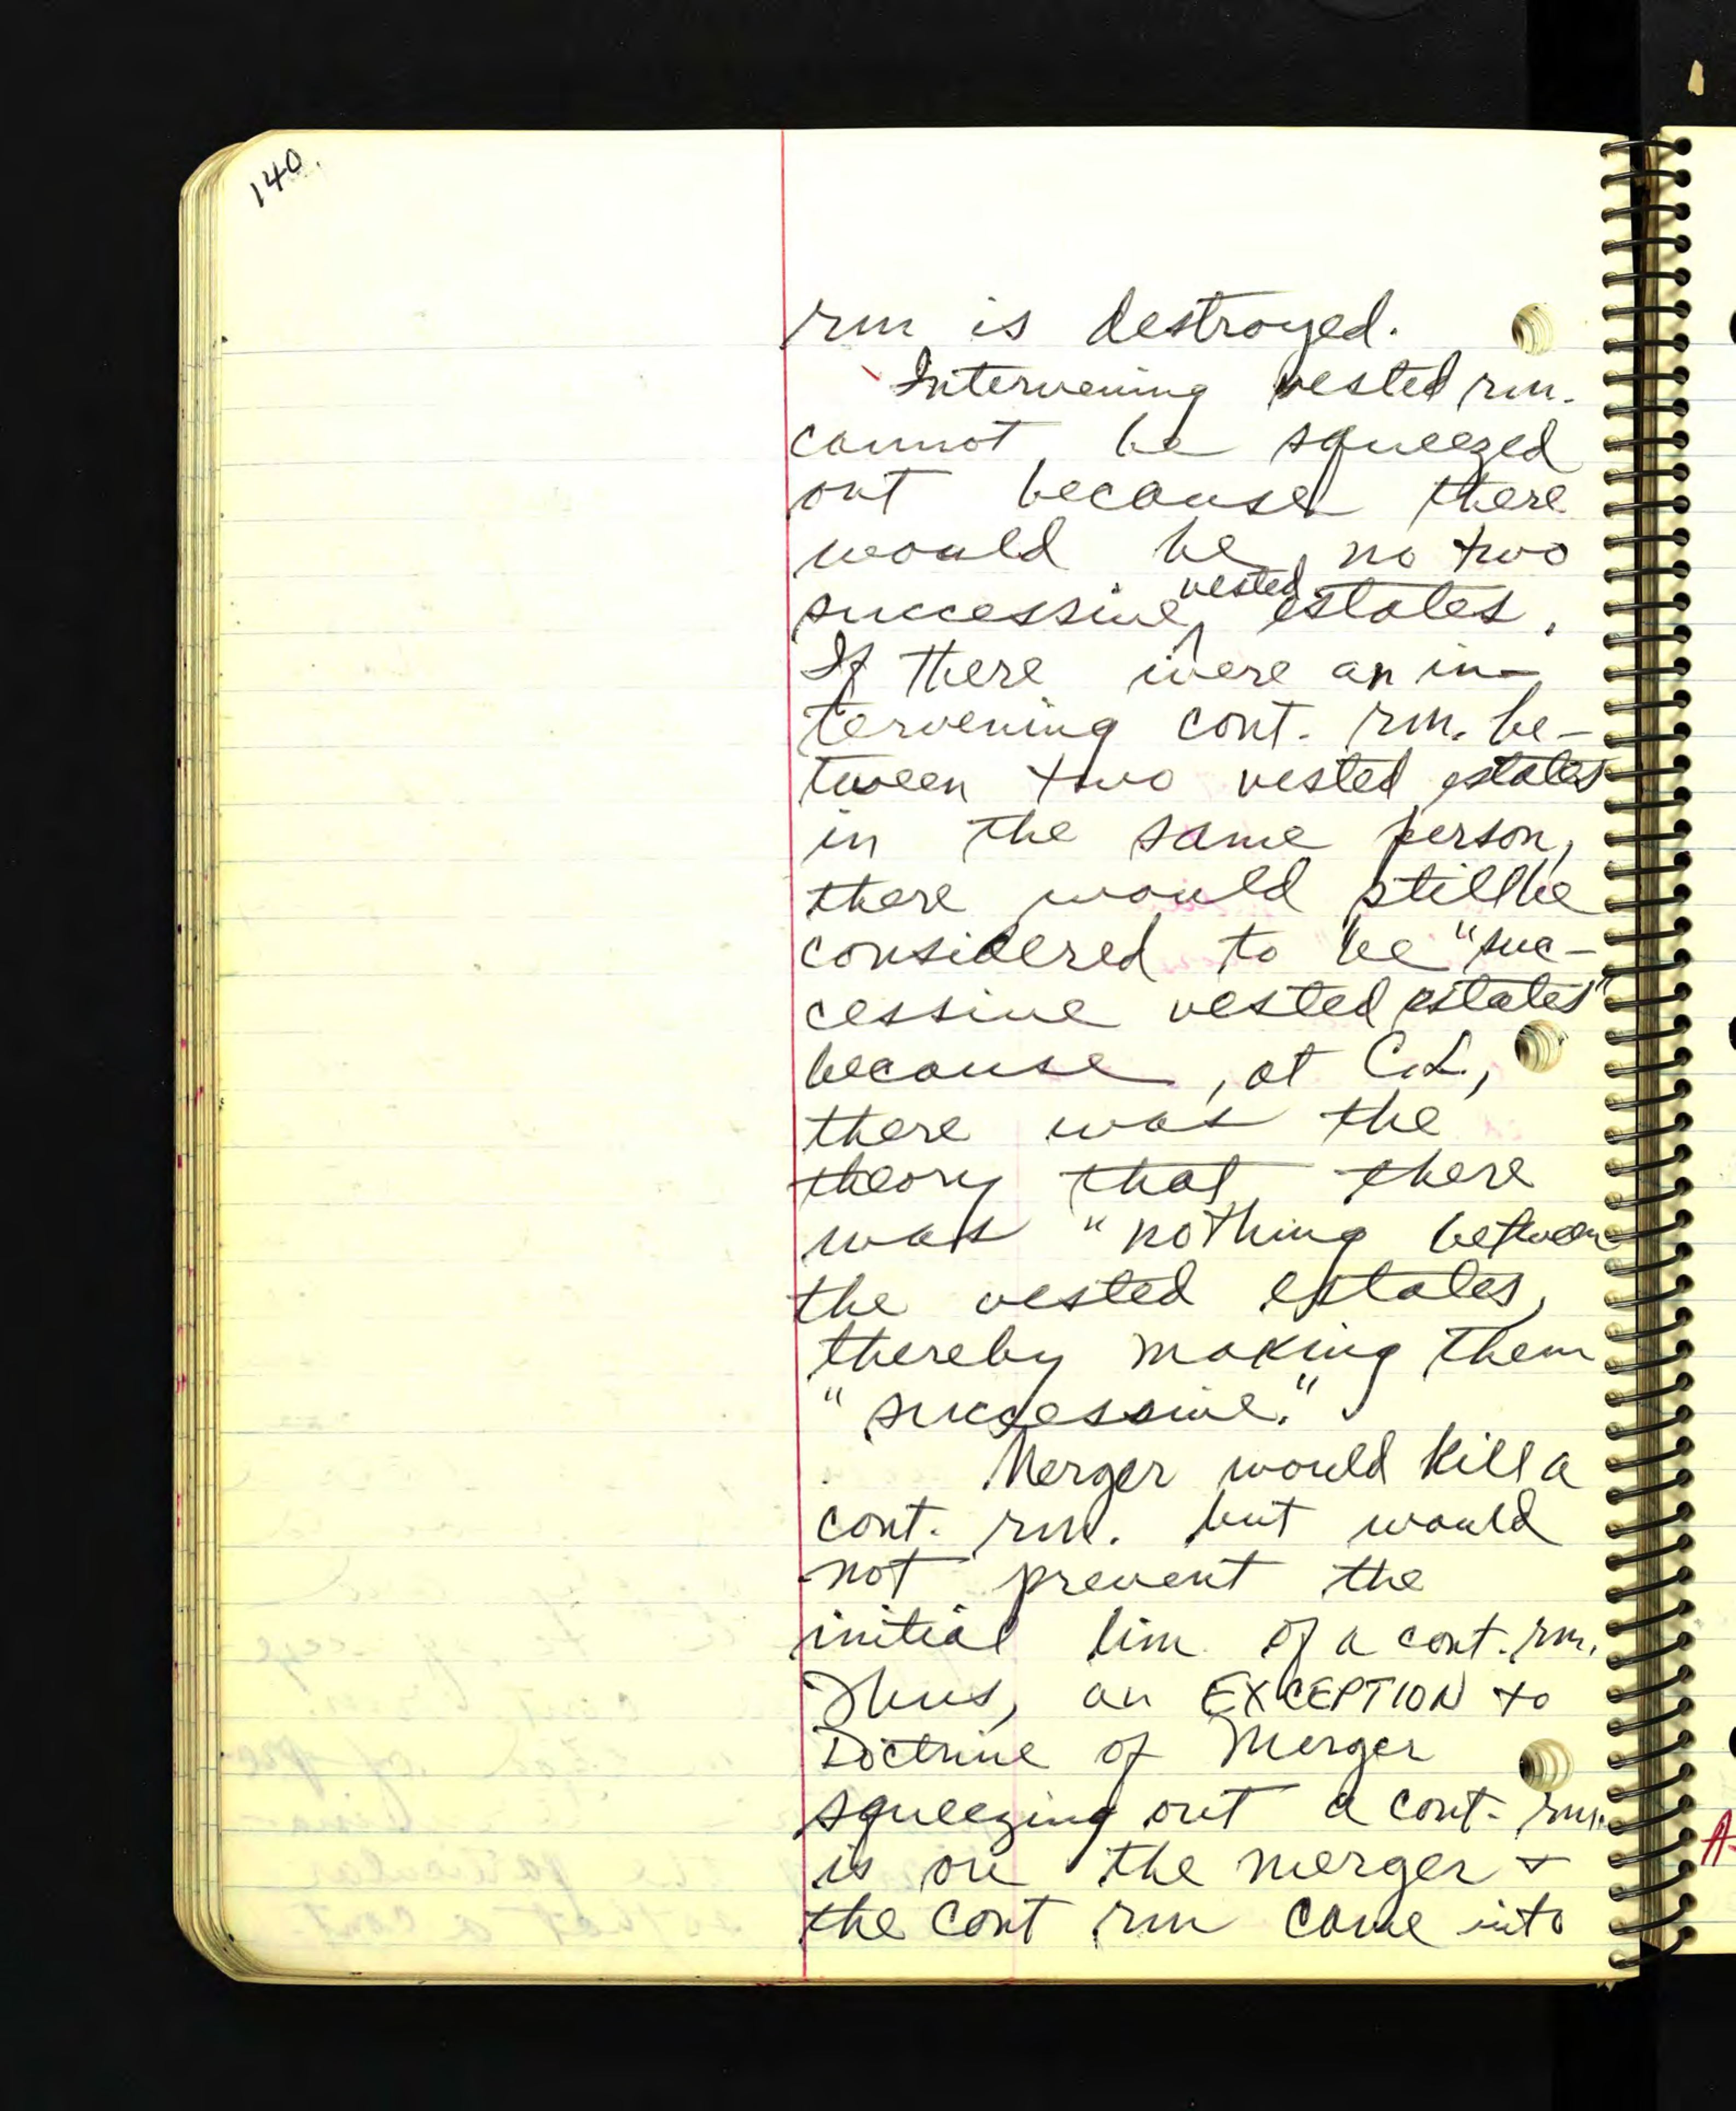 140.
rm is destroyed.
Intervening vested rm.
cannot be squeezed
out because there
would be no two
successive vested estates.
If there were an in-
tervening cont. rm. be-
tween two vested estates
in the same person,
there would still be
considered to be "suc-
cessive vested estates"
because, at C.L.,
there was the
theory that there
was "nothing between
the vested estates,
thereby making them
"successive."
Merger would kill a
cont. rm. but would
not prevent the
initial lim. of a cont. rm.
Thus, an EXCEPTION to
Doctrine of Merger
squeezing out a cont. rm.
is on the merger &
the cont rm came into
A